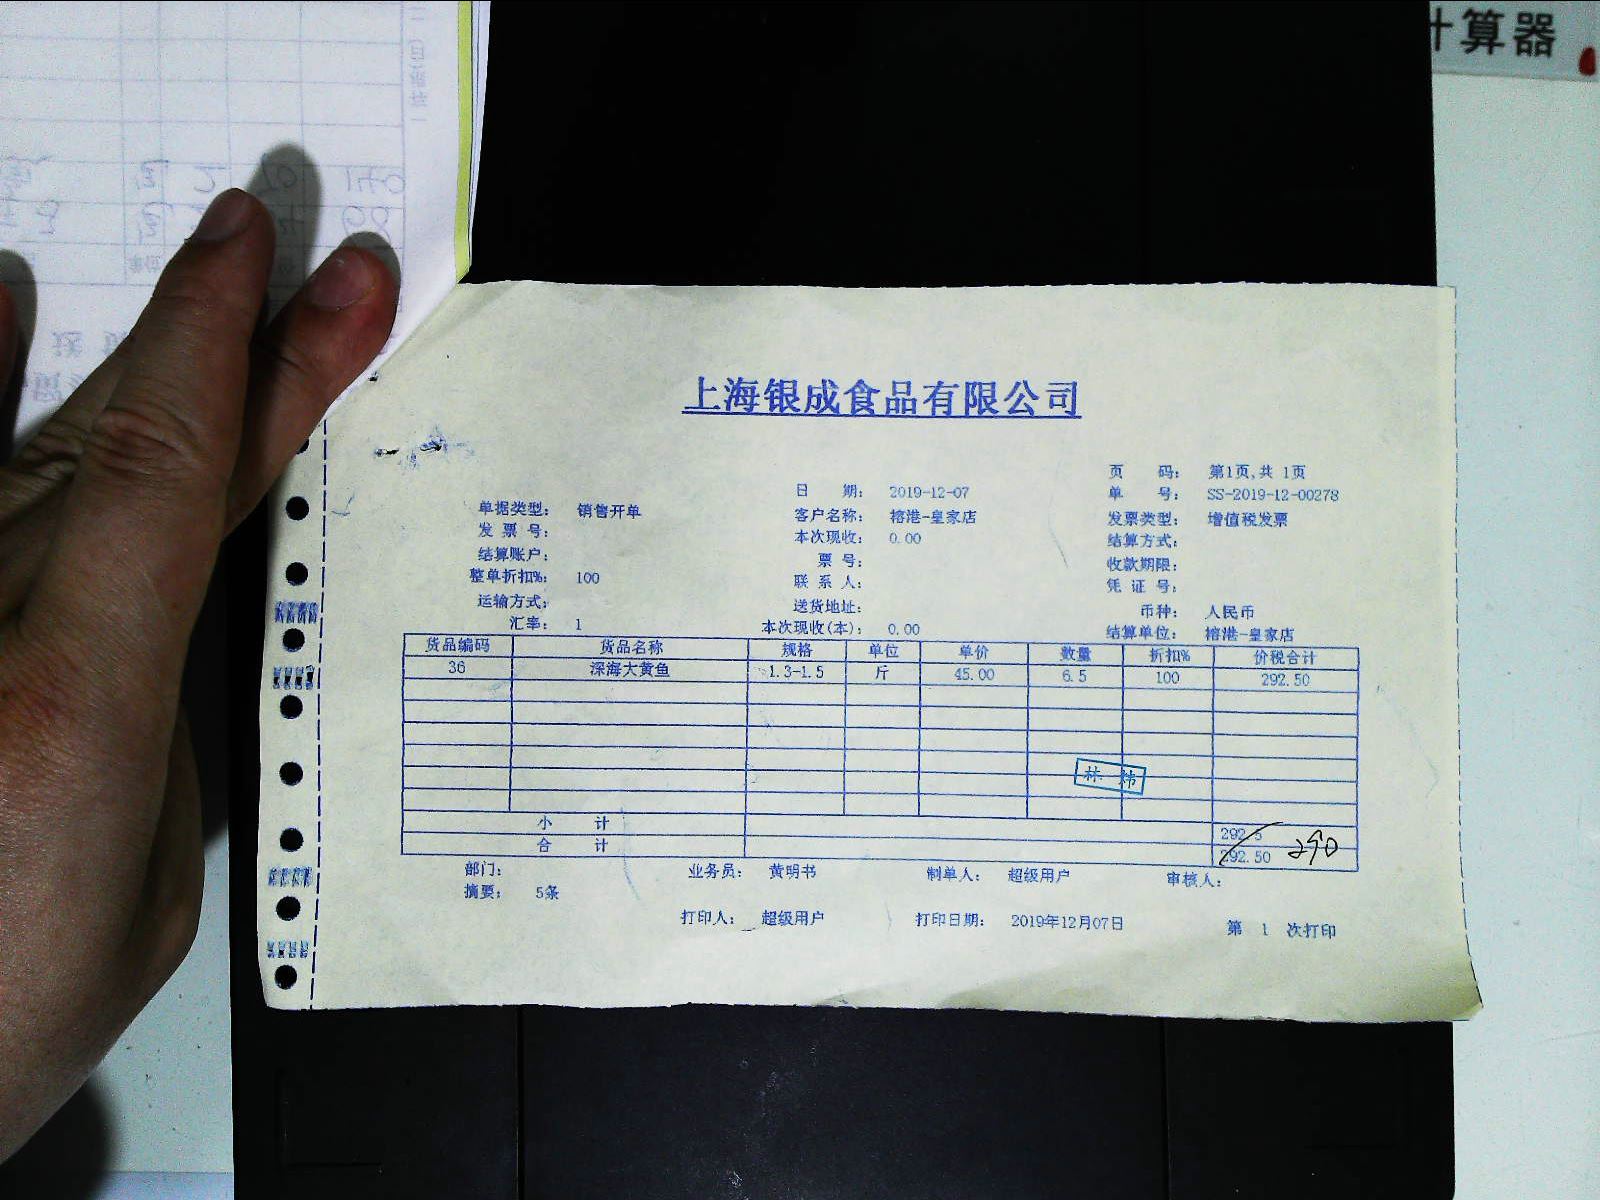 算器
上海银成食品有限公司
页 码： 第1页,共 1页
日 期： 2019-12-07
单 号： SS-2019-12-00278
单据类型： 销售开单
客户名称： 榕港-皇家店
发票类型： 增值税发票
发 票 号：
本次现收： 0.00
结算方式：
结算账户：
票 号：
收款期限：
整单折扣%： 100
联 系 人：
凭 证 号：
运输方式：
送货地址：
币种： 人民币
汇率： 1
本次现收(本)： 0.00
结算单位： 榕港-皇家店
货品编码 货品名称 规格 单位 单价 数量 折扣% 价税合计
36 深海大黄鱼 1.3-1.5 斤 45.00 6.5 100 292.50
林 炜
小 计 292.5
合 计 292.50 290
部门： 业务员： 黄明书 制单人： 超级用户 审核人：
摘要： 5条
打印人： 超级用户 打印日期： 2019年12月07日 第 1 次打印